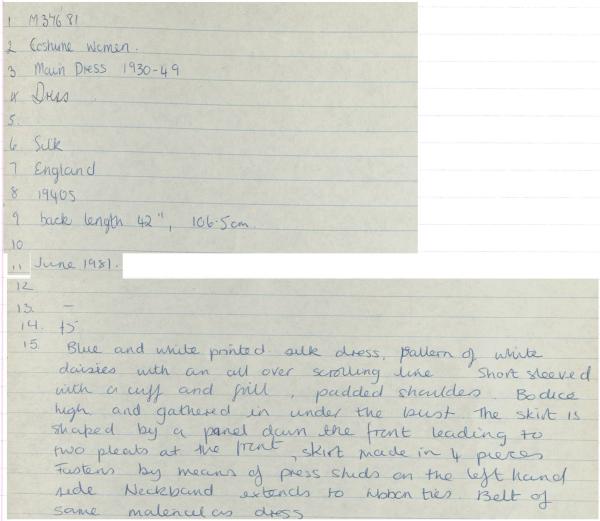 1 M37681
2 Costume Women.
3 Main Dress 1930-49
4 Dress
5.
6 Silk
7 England
8 1940s
9 back length 42", 106.5cm.
10
11 June 1981.
12
13. -
14. £5
15. Blue and white printed silk dress, pattern of white
daisies with an all over scrolling line Short sleeved
with a cuff and frill, padded shoulders. Bodice
high and gathered in under the bust The skirt is
shaped by a panel down the front leading to
two pleats at the front, skirt made in 4 pieces
Fastens by means of press studs on the left hand
side Neckband extends to ribbon ties. Belt of
same material as dress